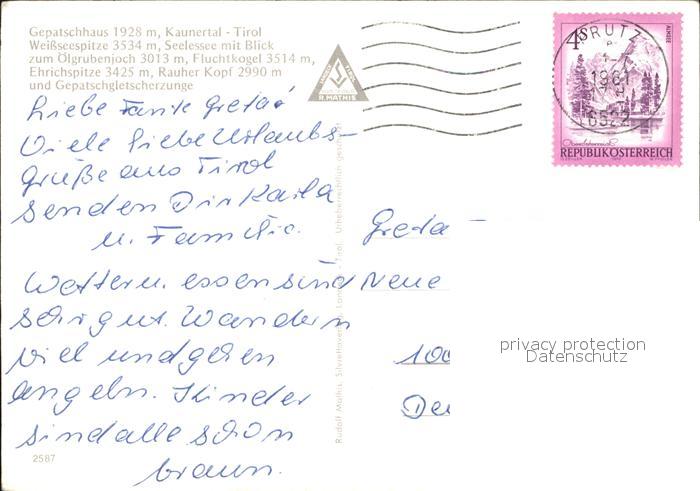 Gepatschhaus 1928 m, Kaunertal - Tirol
Weißseespitze 3534 m, Seelessee mit Blick
zum Ölgrubenjoch 3013 m, Fluchtkogel 3514 m,
Ehrichspitze 3425 m, Rauher Kopf 2990 m
und Gepatschgletscherzunge
R. MATHIS
4S
ALMSEE
REPUBLIK ÖSTERREICH
PRUTZ
1981
6522
Liebe Tante Greta!
Viele liebe Urlaubs-
grüße aus Tirol
senden Dir Karla
u. Familie.
Wetter u. essen sind
sehr gut. Wandern
viel und gehen
angeln. Kinder
sind alle schon
braun.
Greta
Neue
100
De
privacy protection
Datenschutz
Rudolf Mathis, Silvrettaverlag, Landeck - Tirol. Urheberrechtlich geschützt
2587